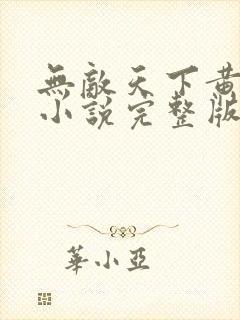 無敵天下黄
小說完整版
華小亞